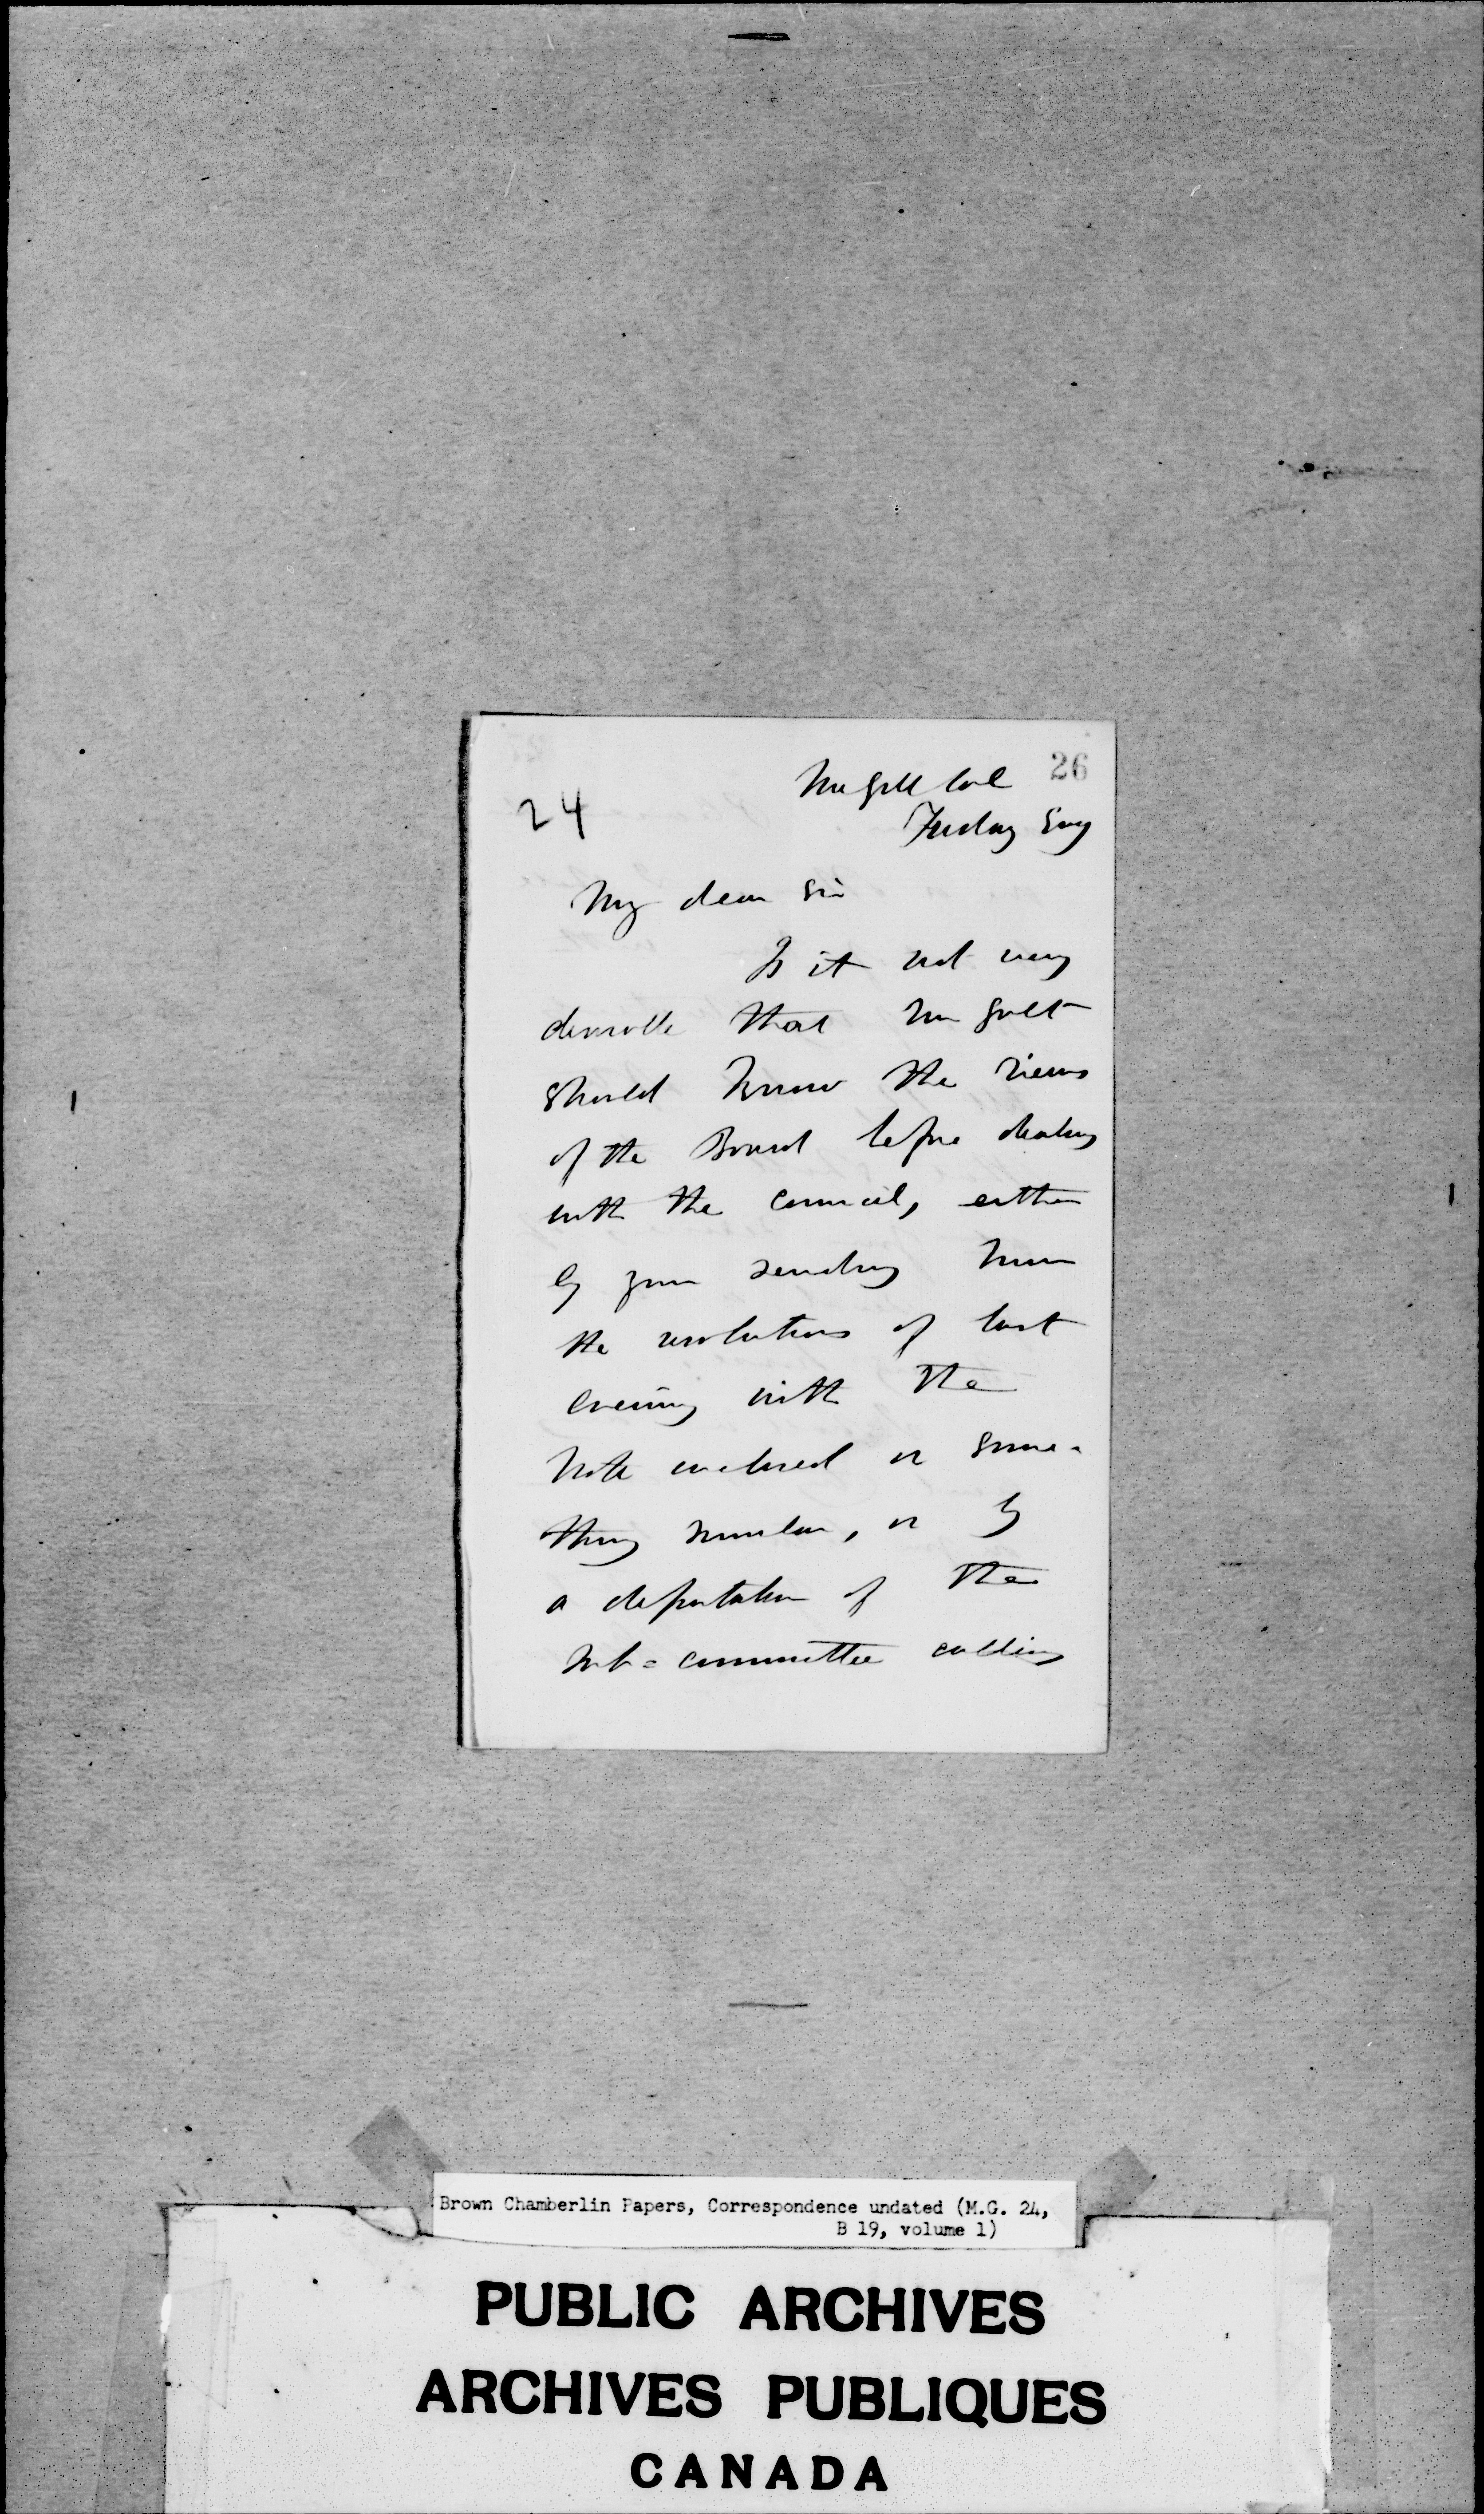 26
McGill Col
24
Friday Evg
My dear Sir
Is it not very
desirable that Mr Galt
should know the views
of the Board before dealing
with the Council, either
by your sending him
the resolutions of last
evening with the
note enclosed or some-
thing similar, or by
a deputation of the
sub-committee calling
Brown Chamberlin Papers, Correspondence undated (M.G. 24,
B 19, volume 1)
PUBLIC ARCHIVES
ARCHIVES PUBLIQUES
CANADA